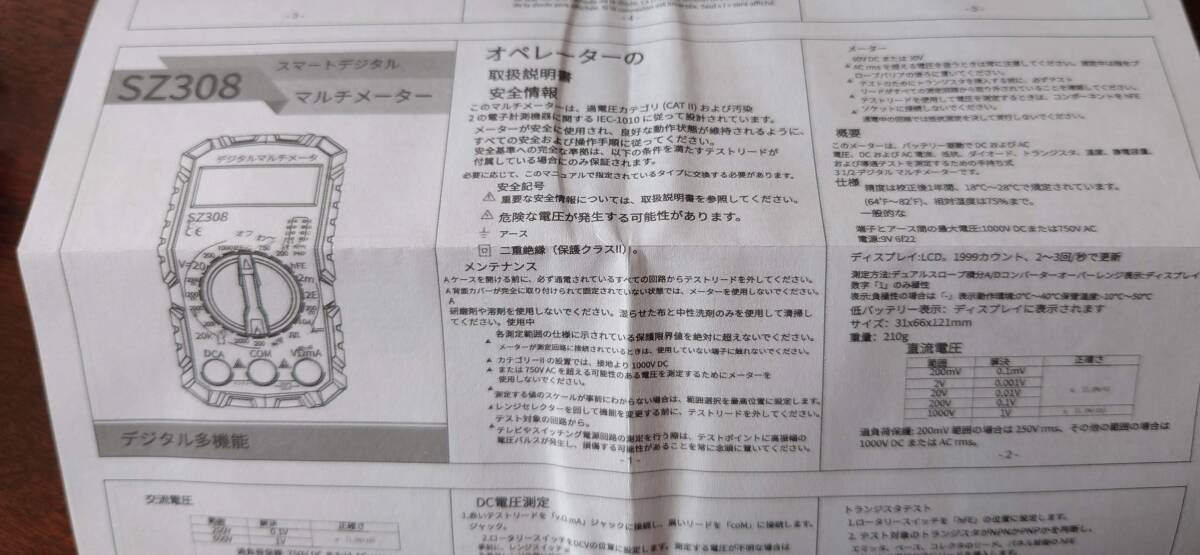 - 3 -
- 4 -
- 5 -
スマートデジタル
SZ308
マルチメーター
デジタルマルチメータ
SZ308
オフ
hFE
DCA
COM
VΩmA
デジタル多機能
オペレーターの
取扱説明書
安全情報
このマルチメーターは、過電圧カテゴリ (CAT II) および汚染
2 の電子計測機器に関する IEC-1010 に従って設計されています。
メーターが安全に使用され、良好な動作状態が維持されるように、
すべての安全および操作手順に従ってください。
安全基準への完全な準拠は、以下の条件を満たすテストリードが
付属している場合にのみ保証されます。
必要に応じて、このマニュアルで指定されているタイプに交換する必要があります。
安全記号
重要な安全情報については、取扱説明書を参照してください。
危険な電圧が発生する可能性があります。
アース
二重絶縁（保護クラスII）。
メンテナンス
A ケースを開ける前に、必ず通電されているすべての回路からテストリードを外してください。
A 背面カバーが完全に取り付けられて固定されていない状態では、メーターを使用しないでください。
A
研磨剤や溶剤を使用しないでください。湿らせた布と中性洗剤のみを使用して清掃し
てください。使用中
各測定範囲の仕様に示されている保護限界値を絶対に超えないでください。
メーターが測定回路に接続されているときは、使用していない端子に触れないでください。
カテゴリーII の設置では、接地より 1000V DC
または 750V AC を超える可能性のある電圧を測定するためにメーターを
使用しないでください。
測定する値のスケールが事前にわからない場合は、範囲選択を最高位置に設定します。
レンジセレクターを回して機能を変更する前に、テストリードを外してください。
テスト対象の回路から。
テレビやスイッチング電源回路の測定を行う際は、テストポイントに高振幅の
電圧パルスが発生し、損傷する可能性があることを常に念頭に置いてください。
- 1 -
メーター
60V DC または 30V
AC rms を超える電圧を扱うときは常に注意してください。測定中は指をプ
ローブバリアの後ろに置いてください。
テストのためにトランジスタを挿入する前に、必ずテスト
リードがすべての測定回路から取り外されていることを確認してください。
テストリードを使用して電圧を測定するときは、コンポーネントを hFE
ソケットに接続しないでください。
通電中の回路では抵抗測定を決して実行しないでください。
概要
このメーターは、バッテリー駆動で DC および AC
電圧、DC および AC 電流、抵抗、ダイオード、トランジスタ、温度、静電容量、
および導通テストを測定するための手持ち式
3 1/2 デジタル マルチメーターです。
仕様
精度は校正後1年間、18℃～28℃で規定されています。
(64°F～82°F)、相対湿度は75%まで。
一般的な
端子とアース間の最大電圧:1000V DCまたは750V AC
電源:9V 6F22
ディスプレイ:LCD。1999カウント、2～3回/秒で更新
測定方法:デュアルスロープ積分A/Dコンバーターオーバーレンジ表示:ディスプレイ
数字「1」のみ極性
表示:負極性の場合は「-」表示動作環境:0℃～40℃保管温度:-10℃～50℃
低バッテリー表示: ディスプレイに表示されます
サイズ: 31x66x121mm
重量: 210g
直流電圧
範囲 解決 正確さ
200mV 0.1mV
2V 0.001V
20V 0.01V
200V 0.1V
1000V 1V
過負荷保護: 200mV 範囲の場合は 250V rms、その他の範囲は
1000V DC または AC rms。
- 2 -
交流電圧
範囲 解決 正確さ
200V 0.1V
600V 1V
DC電圧測定
1.赤いテストリードを「V.Ω.mA」ジャックに接続し、黒いリードを「CoM」に接続します。
ジャック。
2.ロータリースイッチをDCVの位置に設定します。測定する電圧が不明な場合は
トランジスタテスト
1.ロータリースイッチを「hFE」の位置に設定します。
2. テスト対象のトランジスタがNPNかPNPかを判断し、